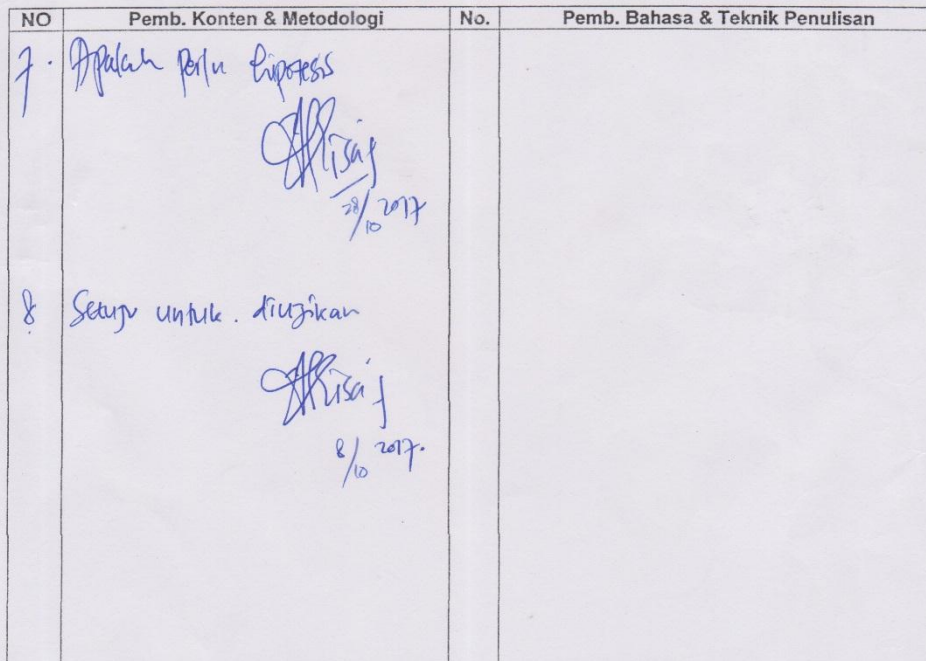 NO Pemb. Konten & Metodologi No. Pemb. Bahasa & Teknik Penulisan
7. Apakah perlu hipotesis
28/10 2017
8 Setuju untuk. diujikan
8/10 2017.